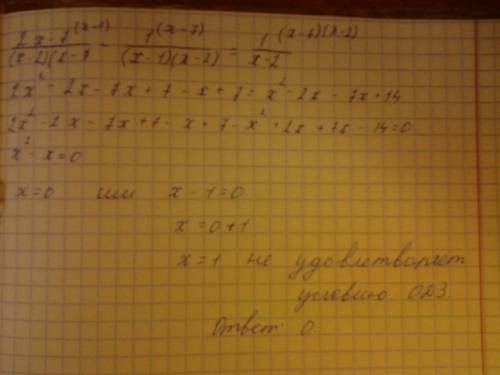 (2x-7)^(x-1)/((x-2)(x-7) - 1^(x-7)/((x-1)(x-2)) = 1^(x-7)(x-2)/(x-2)
2x² - 2x - 7x + 7 - x + 7 = x² - 2x - 7x + 14
2x² - 2x - 7x + 7 - x + 7 - x² + 2x + 7x - 14 = 0
x² - x = 0
x = 0 или x - 1 = 0
x = 0 + 1
x = 1 не удовлетворяет
условию ОДЗ
Ответ: 0